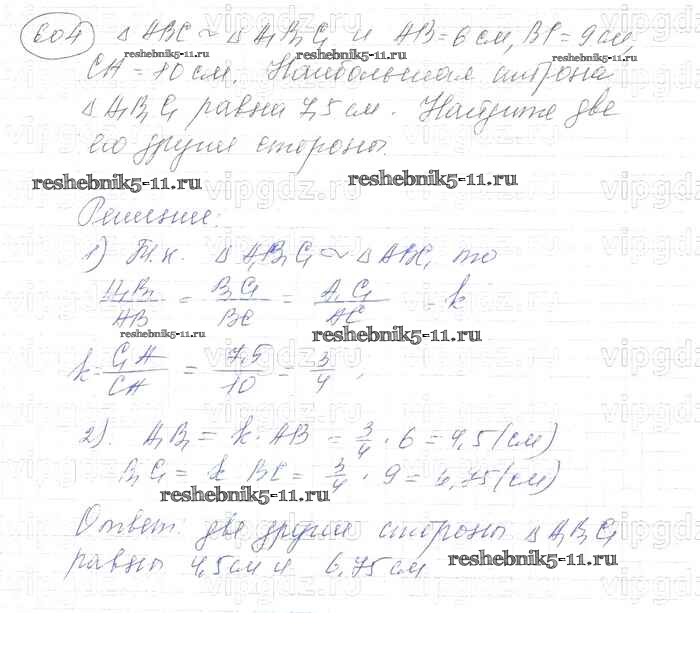 604 △ABC ~ △A₁B₁C₁ и AB = 6 см, BC = 9 см,
CA = 10 см. Наибольшая сторона
△A₁B₁C₁ равна 7,5 см. Найдите две
его другие стороны.
Решение:
1) Т.к. △A₁B₁C₁ ~ △ABC, то
A₁B₁/AB = B₁C₁/BC = A₁C₁/AC = k
k = C₁A₁/CA = 7,5/10 = 3/4,
2). A₁B₁ = k · AB = 3/4 · 6 = 4,5 (см)
B₁C₁ = k BC = 3/4 · 9 = 6,75 (см)
Ответ: две другие стороны △A₁B₁C₁
равны 4,5 см и 6,75 см
reshebnik5-11.ru
vipgdz.ru